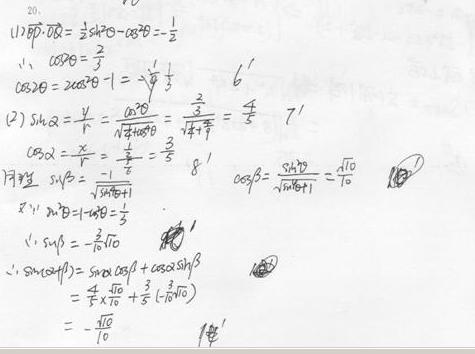 20.
(1) OP·OQ = 1/2 sin²θ - cos²θ = -1/2
∴ cos²θ = 2/3
cos2θ = 2cos²θ - 1 = 1/3 6'
(2) sinα = y/r = cos²θ/√(1/4+cos⁴θ) = (2/3)/√(1/4+4/9) = 4/5 7'
cosα = x/r = (1/2)/(5/6) = 3/5 8'
同理 sinβ = -1/√(sin⁴θ+1) cosβ = sin²θ/√(sin⁴θ+1) = √10/10
又∵ sin²θ = 1-cos²θ = 1/3
∴ sinβ = -3/10 √10
∴ sin(α+β) = sinα cosβ + cosα sinβ
= 4/5 × √10/10 + 3/5 (-3/10 √10)
= -√10/10